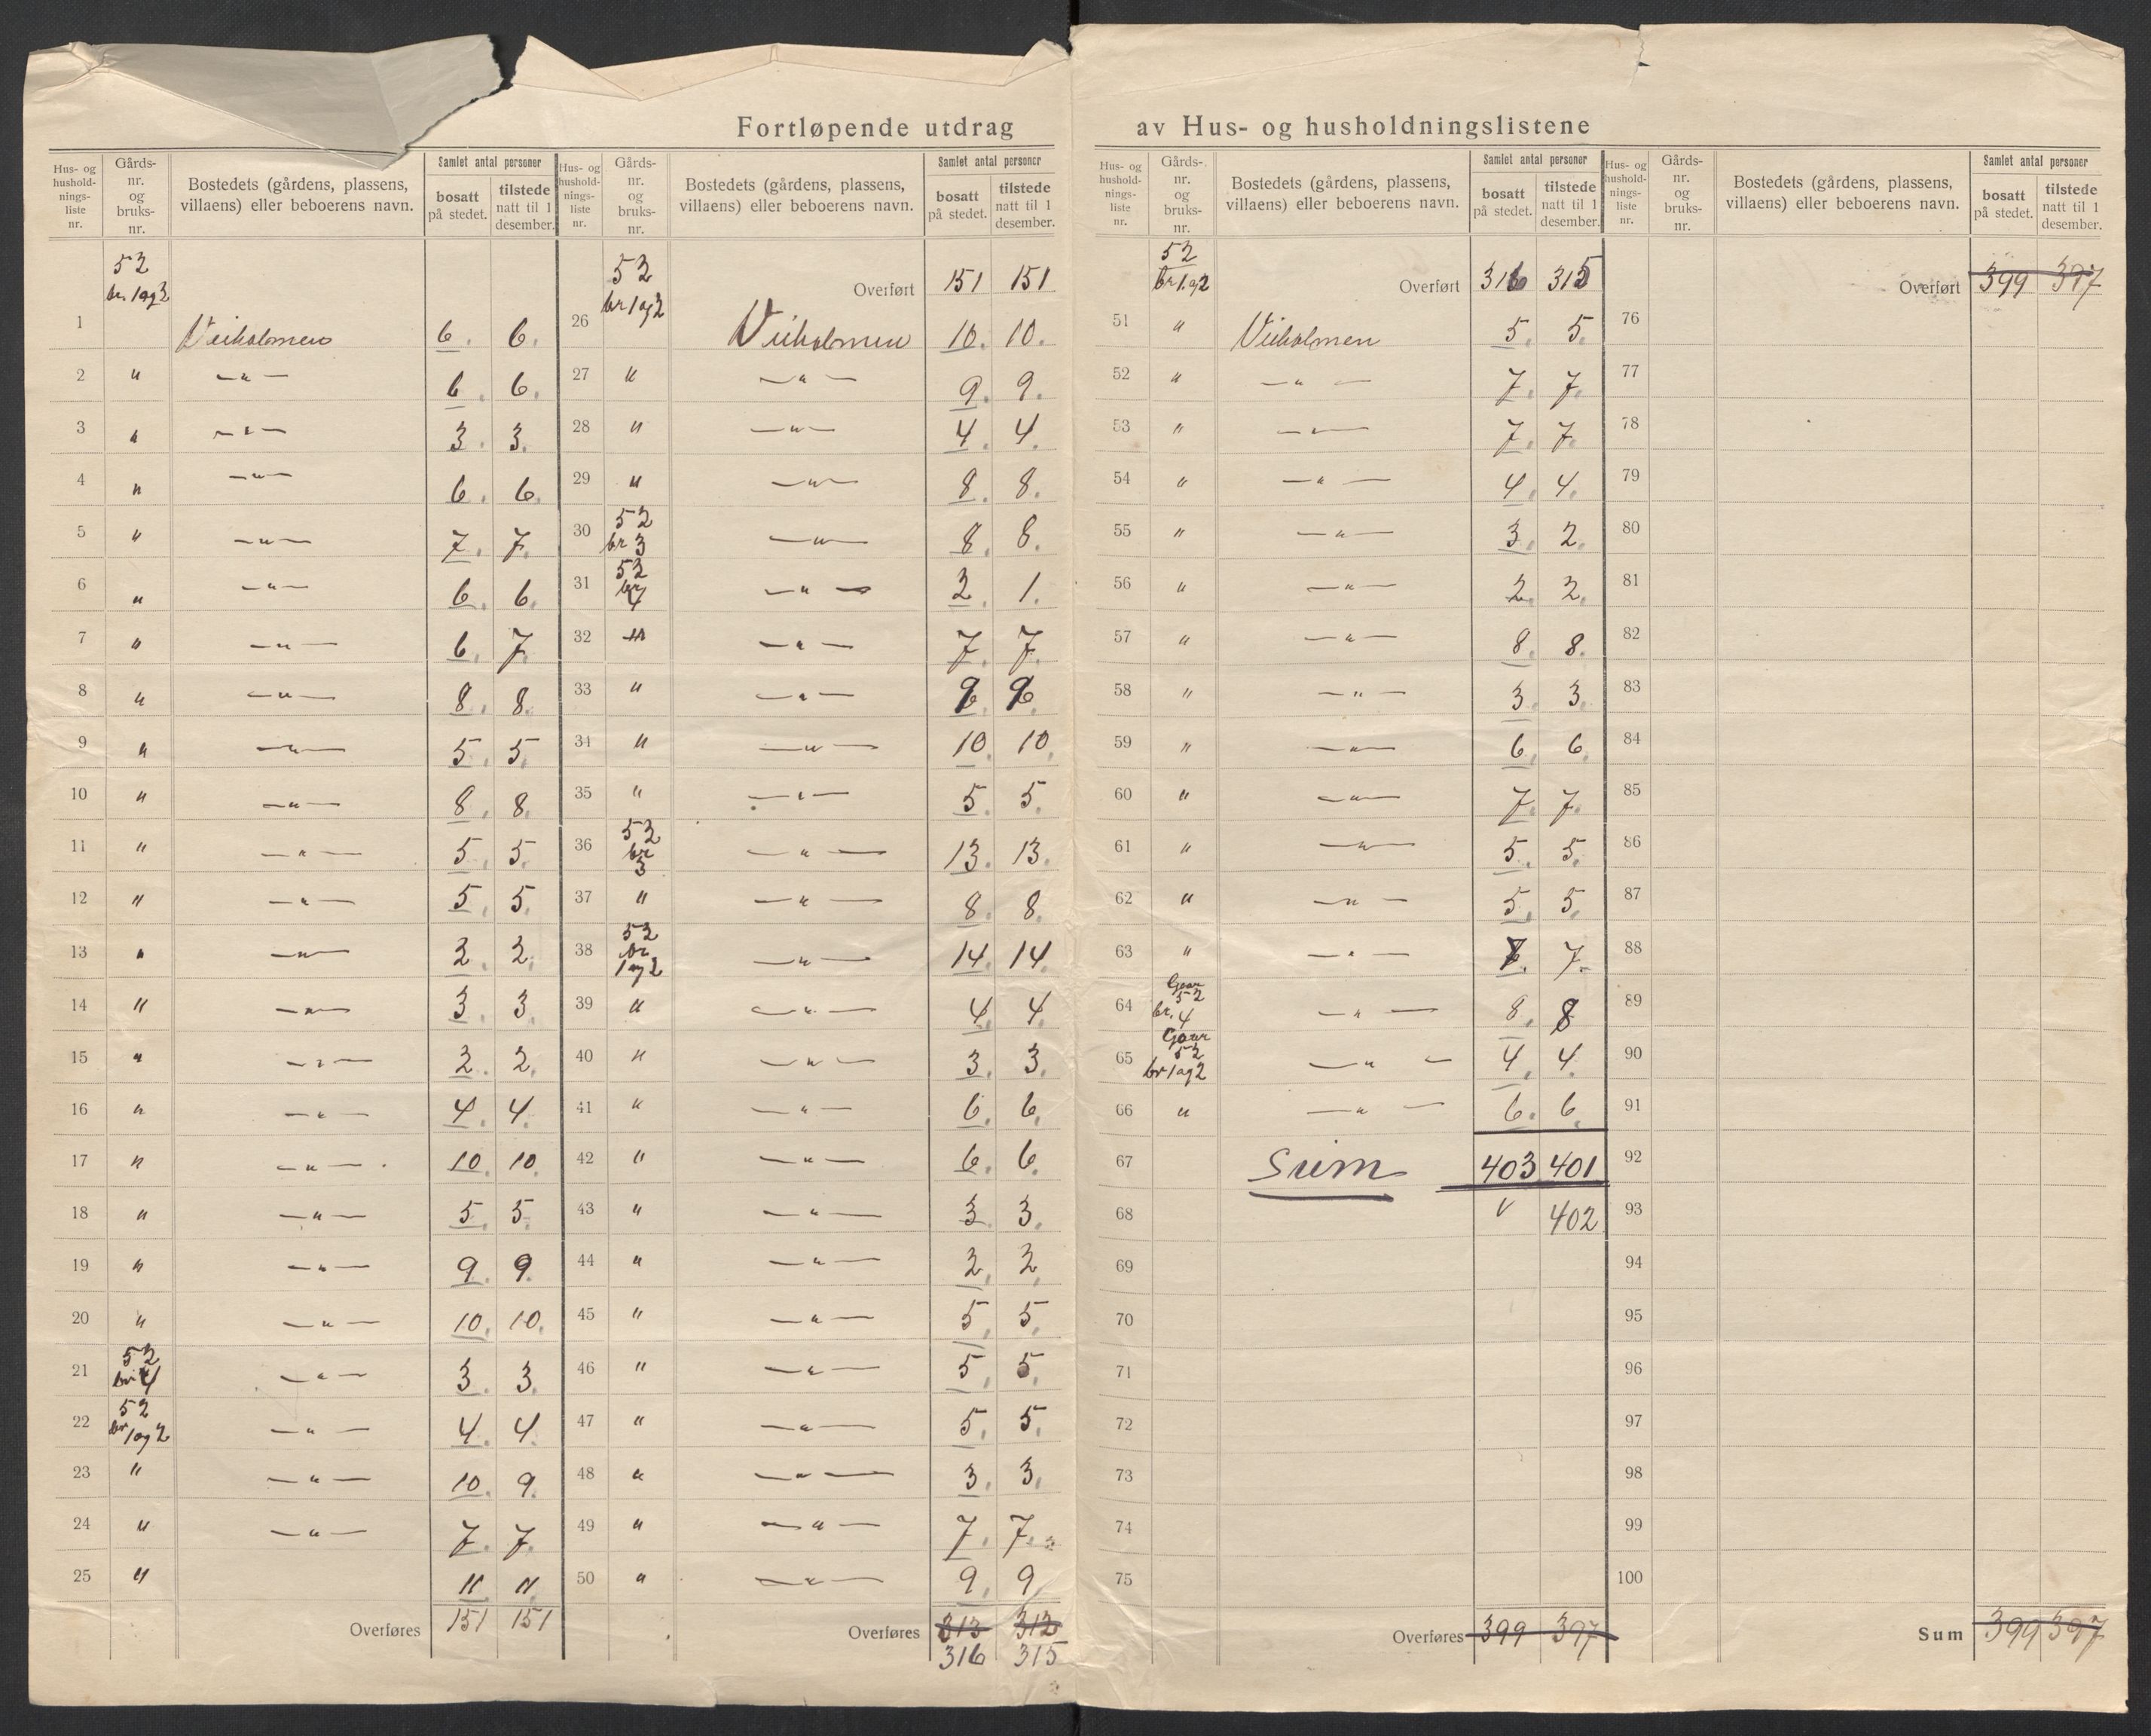 Fortløpende utdrag av Hus- og husholdningslistene
Hus- og hushold-nings-liste nr. | Gårds-nr. og bruks-nr. | Bostedets (gårdens, plassens, villaens) eller beboerens navn. | Samlet antal personer | bosatt på stedet. | tilstede natt til 1 desember.
52 br. 1 og 2
1 Veiholmen 6. 6.
2 " —"— 6. 6.
3 " —"— 3. 3.
4 " —"— 6. 6.
5 " —"— 7. 7.
6 " —"— 6. 6.
7 " —"— 6. 7.
8 " —"— 8. 8.
9 " —"— 5. 5.
10 " —"— 8. 8.
11 " —"— 5. 5.
12 " —"— 5. 5.
13 " —"— 2. 2.
14 " —"— 3. 3.
15 " —"— 2. 2.
16 " —"— 4. 4.
17 " —"— 10. 10.
18 " —"— 5. 5.
19 " —"— 9. 9.
20 " —"— 10. 10.
21 52 br 4 —"— 3. 3.
22 52 br 1 og 2 —"— 4. 4.
23 " —"— 10. 9.
24 " —"— 7. 7.
25 " 11. 11.
Overføres 151 151
Hus- og hushold-nings-liste nr. | Gårds-nr. og bruks-nr. | Bostedets (gårdens, plassens, villaens) eller beboerens navn. | Samlet antal personer | bosatt på stedet. | tilstede natt til 1 desember.
52 br 1 og 2 Overført 151 151
26 Veiholmen 10. 10.
27 " —"— 9. 9.
28 " —"— 4. 4.
29 " —"— 8. 8.
30 52 br 3 —"— 8. 8.
31 52 br 4 —"— 2. 1.
32 " —"— 7. 7.
33 " —"—
34 " —"— 10. 10.
35 " —"— 5. 5.
36 52 br 3 —"— 13. 13.
37 " —"— 8. 8.
38 52 br 1 og 2 —"— 14. 14.
39 " —"— 4. 4.
40 " —"— 3. 3.
41 " —"— 6. 6.
42 " —"— 6. 6.
43 " —"— 3. 3.
44 " —"— 2. 2.
45 " —"— 5. 5.
46 " —"— 5. 5.
47 " —"— 5. 5.
48 " —"— 3. 3.
49 " —"— 7. 7.
50 " —"— 9. 9
Overføres 313 312
316 315
Hus- og hushold-nings-liste nr. | Gårds-nr. og bruks-nr. | Bostedets (gårdens, plassens, villaens) eller beboerens navn. | Samlet antal personer | bosatt på stedet. | tilstede natt til 1 desember.
52 br 1 og 2 Overført 316 315
51 " Veiholmen 5. 5.
52 " —"— 7. 7.
53 " —"— 7. 7.
54 " —"— 4. 4.
55 " —"— 3. 2.
56 " —"— 2. 2.
57 " —"— 8. 8.
58 " —"— 3. 3.
59 " —"— 6. 6.
60 " —"— 7. 7.
61 " —"— 5. 5.
62 " —"— 5. 5.
63 " —"— 7. 7.
64 52 br. 4 —"— 8. 8
65 52 br 1 og 2 —"— 4. 4.
66 " —"— 6. 6.
67 Sum 403 401
68 v 402
69
70
71
72
73
74
75
Overføres 399 397
Hus- og hushold-nings-liste nr. | Gårds-nr. og bruks-nr. | Bostedets (gårdens, plassens, villaens) eller beboerens navn. | Samlet antal personer | bosatt på stedet. | tilstede natt til 1 desember.
Overført 399 397
76
77
78
79
80
81
82
83
84
85
86
87
88
89
90
91
92
93
94
95
96
97
98
99
100
Sum 399 397